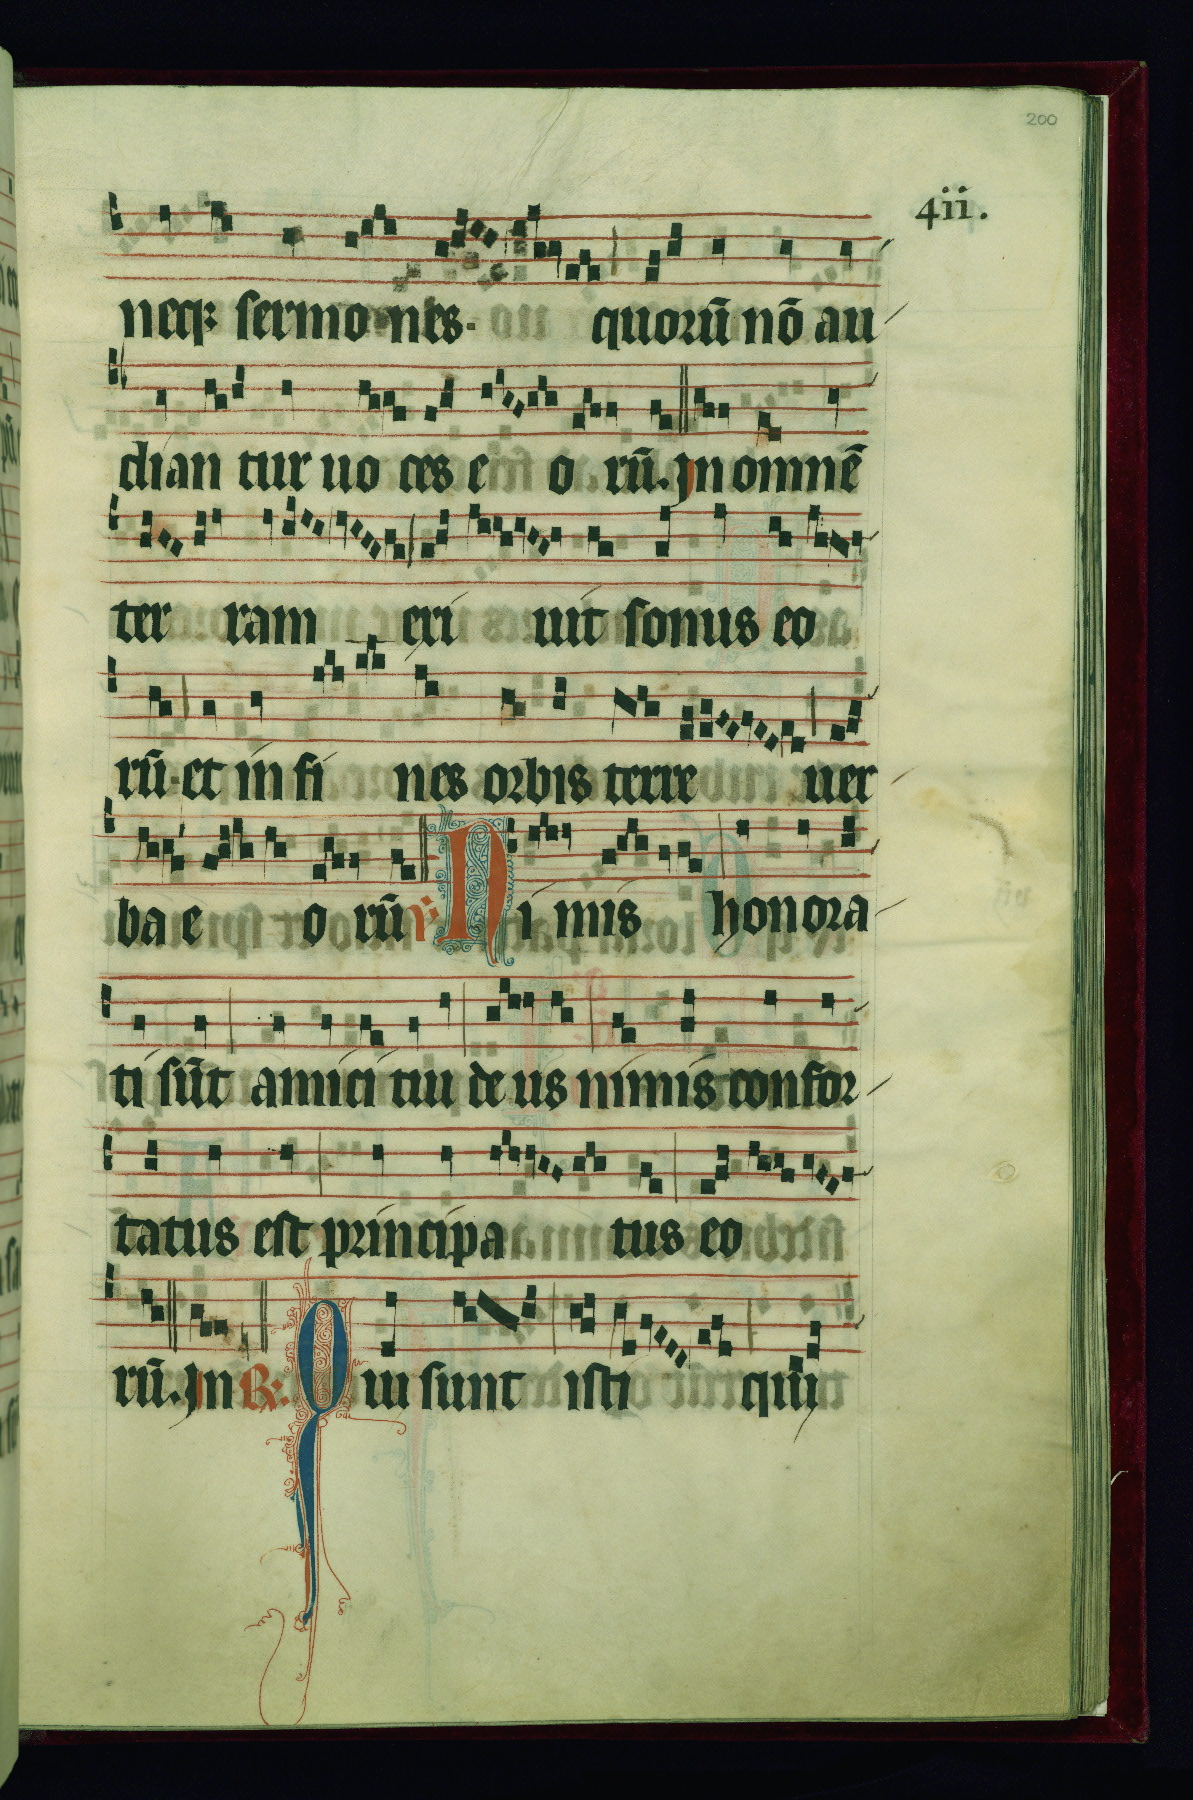 200
4ii.
neqꝫ sermo nes. quorū nō au
dian tur uo ces e o rū. In omnē
ter ram exi uit sonus eo
rū. et in fi nes orbis terre uer
ba e o rū ℣. Ni mis honora
ti sūt amici tui de us nimis confor
tatus est principa tus eo
rū. In ℟. Qui sunt isti qui